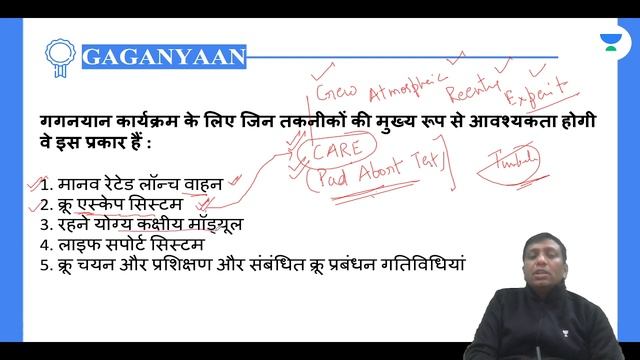 GAGANYAAN
Crew Atmospheric Reentry Experit
गगनयान कार्यक्रम के लिए जिन तकनीकों की मुख्य रूप से आवश्यकता होगी
वे इस प्रकार हैं :
CARE
(Pad Abort Test)
1. मानव रेटेड लॉन्च वाहन
2. क्रू एस्केप सिस्टम
3. रहने योग्य कक्षीय मॉड्यूल
4. लाइफ सपोर्ट सिस्टम
5. क्रू चयन और प्रशिक्षण और संबंधित क्रू प्रबंधन गतिविधियां